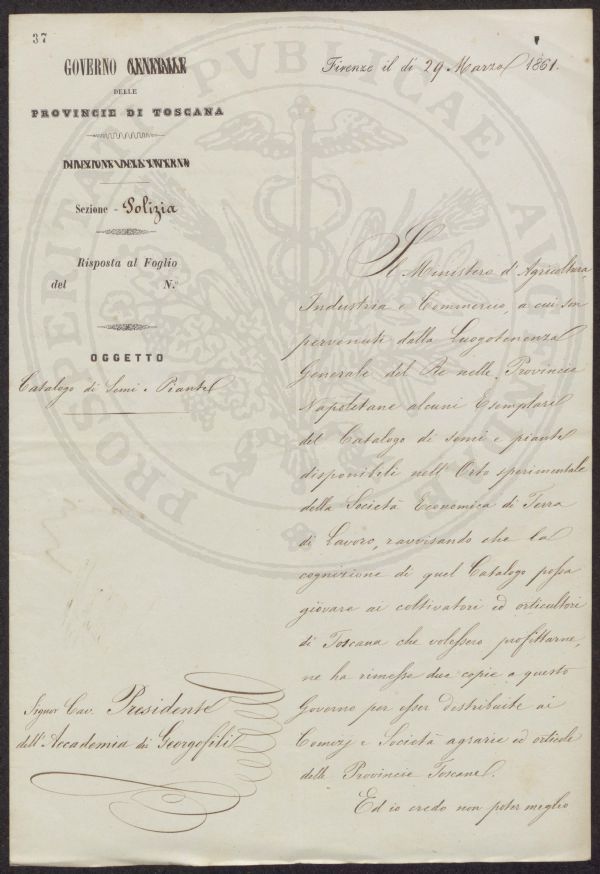 37
GOVERNO GENERALE
DELLE
PROVINCIE DI TOSCANA
DIREZIONE DELL'INTERNO
Sezione - Polizia
Risposta al Foglio
del N.º
OGGETTO
Catalogo di Semi e Piante
Firenze il di 29 Marzo 1861.
Il Ministero d'Agricoltura,
Industria e Commercio, a cui son
pervenuti dalla Luogotenenza
Generale del Re nelle Provincie
Napoletane alcuni Esemplari
del Catalogo di semi e piante
disponibili nell'Orto sperimentale
della Società Economica di Terra
di Lavoro, ravvisando che la
cognizione di quel Catalogo possa
giovare ai coltivatori ed orticultori
di Toscana che volessero profittarne,
ne ha rimesse due copie a questo
Governo per esser distribuite ai
Comizj e Società agrarie ed orticole
delle Provincie Toscane.
Ed io credo non poter meglio
Signor Cav. Presidente
dell'Accademia dei Georgofili
PROSPERITATI PVBLICAE AVGENDAE